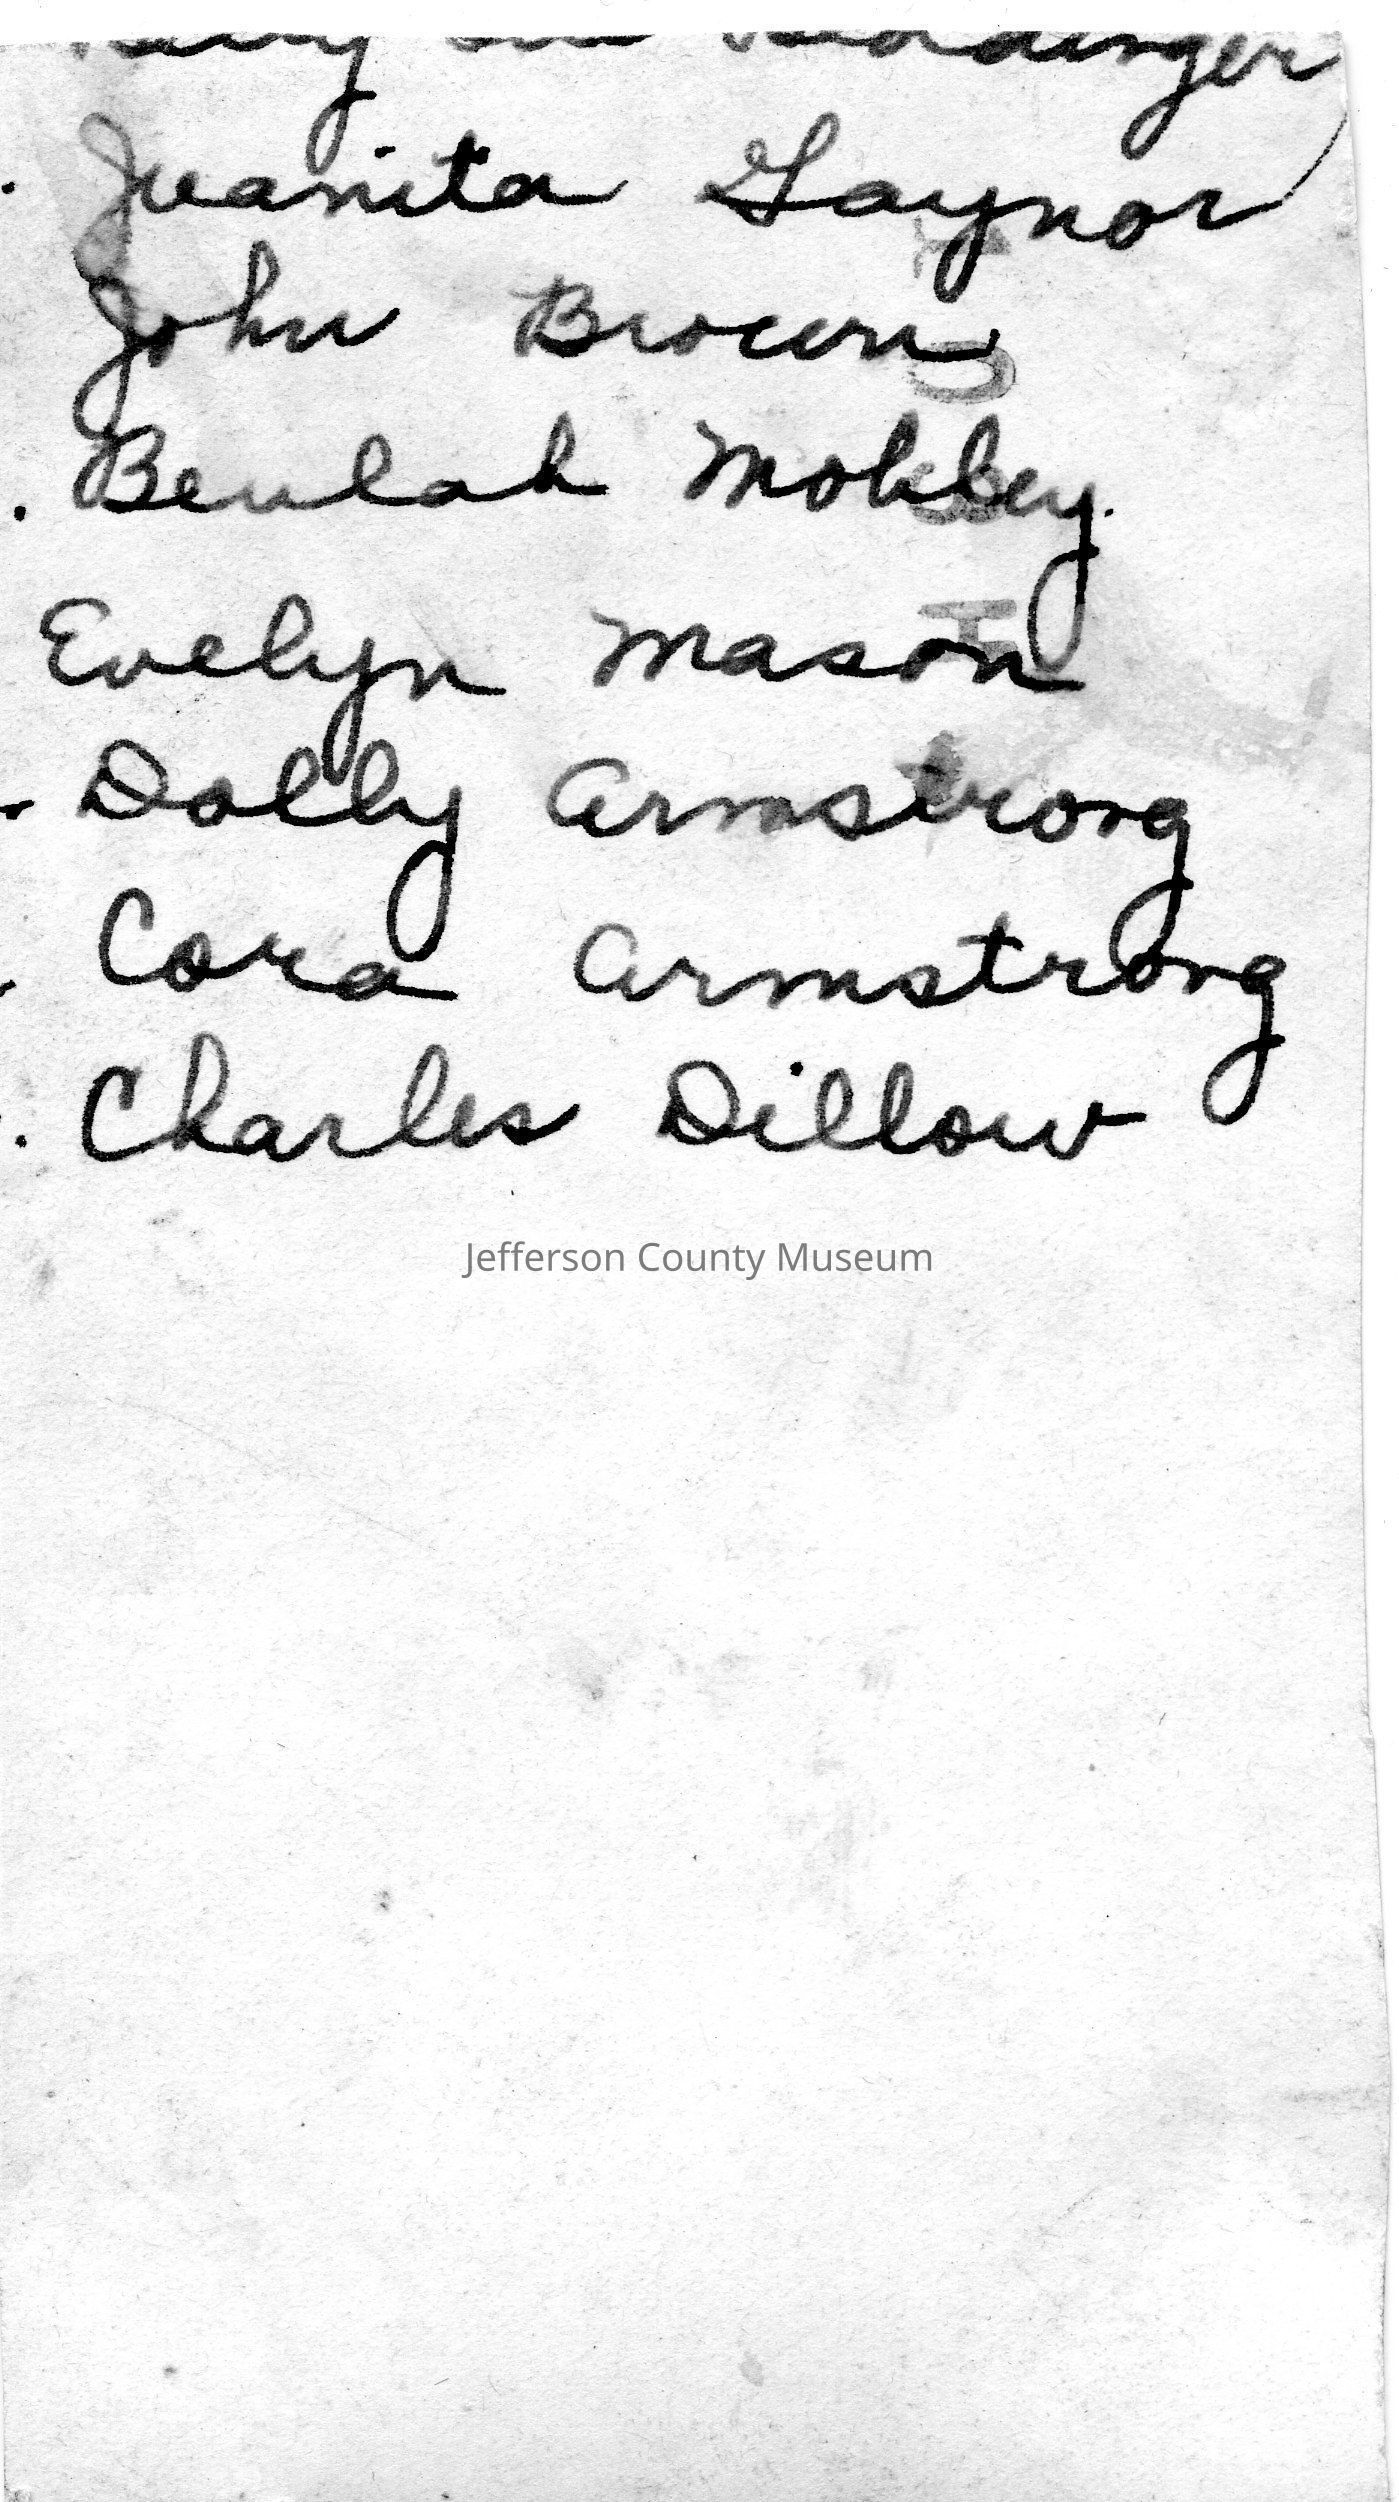 Juanita Gaynor
John Brown
Beulah Mobley.
Evelyn Mason
Dolly Armstrong
Cora Armstrong
Charles Dillow
Jefferson County Museum